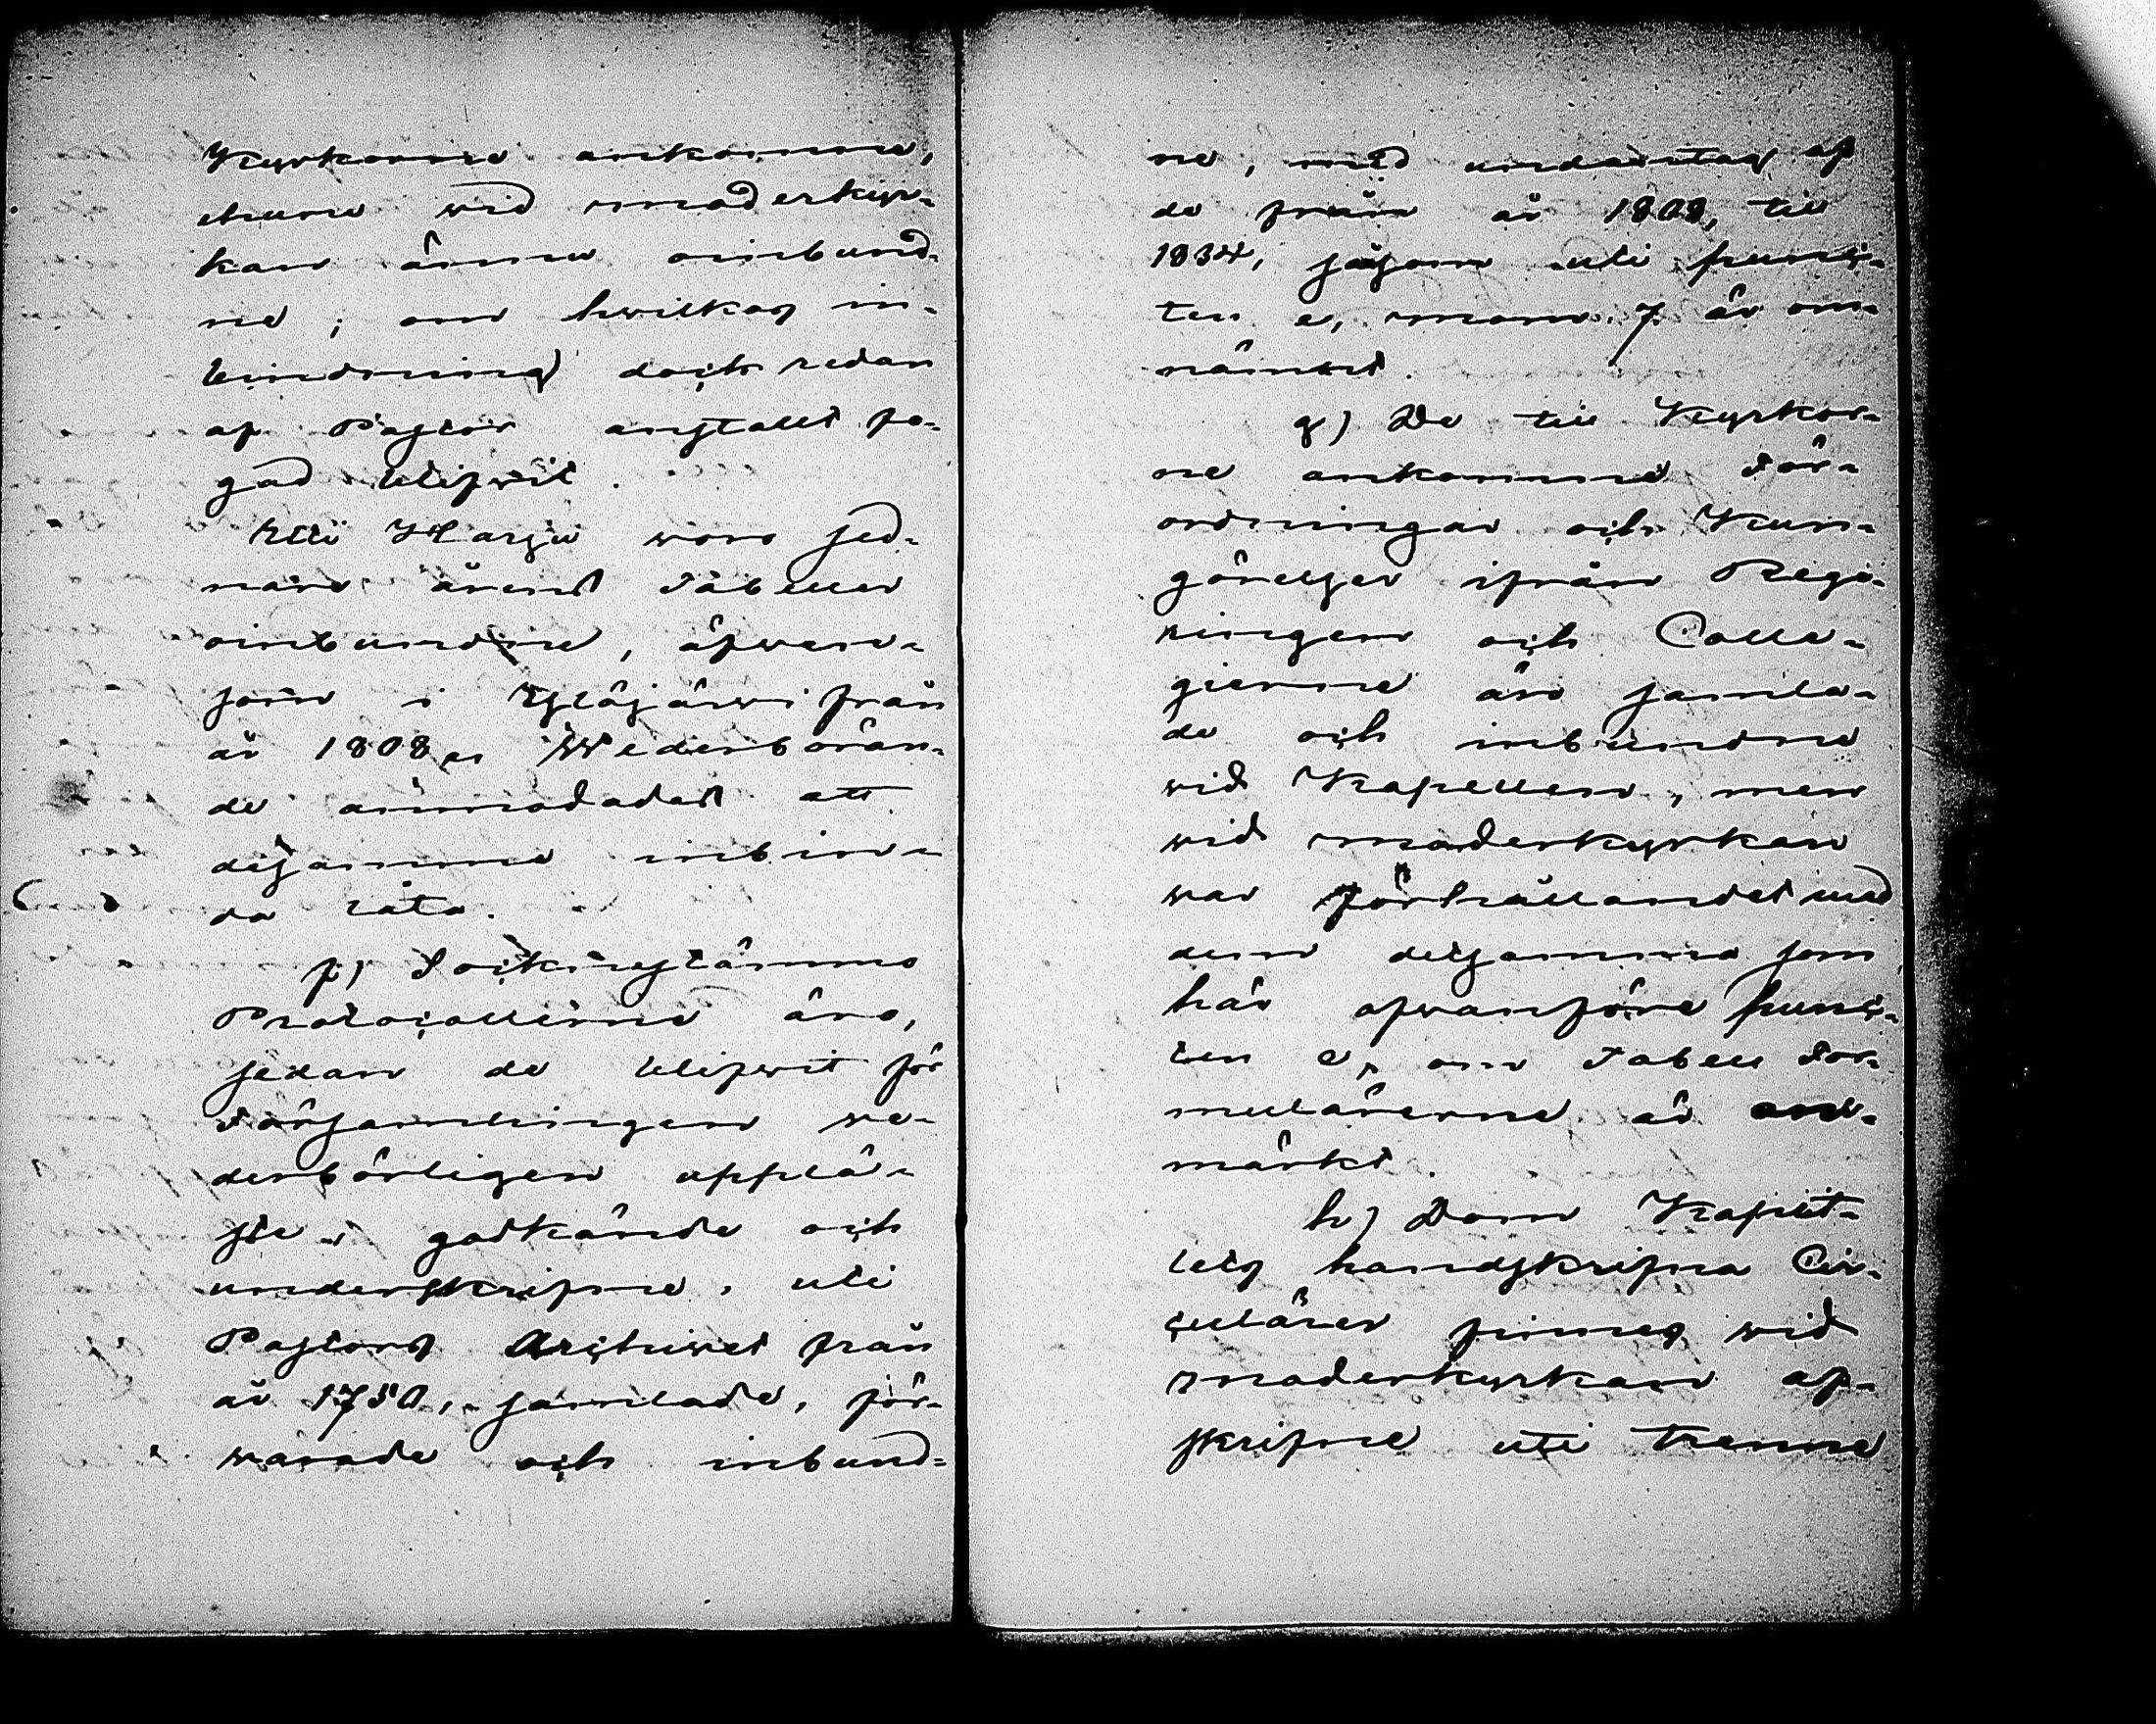 Kyrkorne ankomne,
ehuru wid moderkyr-
kan ännu oinbund-
ne; om hwilkas in-
bindning doch redan
af Pastor anstalt fo-
gad blifwit.
Uti Harju woro sed-
nare årens Tabeller
oinbundne, äfwen-
som i Ylöjärwi från
år 1808, Wederböran-
de anmodades att
desamma inbin-
da låta.
f) Sockenstämmo
Protocollerne äro,
sedan de blifwit för
Församlingen we-
derbörligen upplä-
ste, godkände och
underskrifne, uti
Pastors Archivet från
år 1750, samlade, för-
warade och inbund-
ne, med undantag af
de från år 1808, till
1834, såsom uti punc-
ten e, mom. 7 är om-
nämnt.
g) De till Kyrkor-
ne ankomne För-
ordningar och Kun-
görelser ifrån Rege-
ringen och Colle-
gierne äro samla-
de och inbundne
wid Kapellen, men
wid moderkyrkan
war förhållandet med
dem detsamma som
här ofwanföre punc-
ten e, om Tabell For-
mulärerne är an-
märkt.
h) Dom Kapit-
lets handskrifna Cir-
culärer finnes wid
moderkyrkan af-
skrifne uti trenne